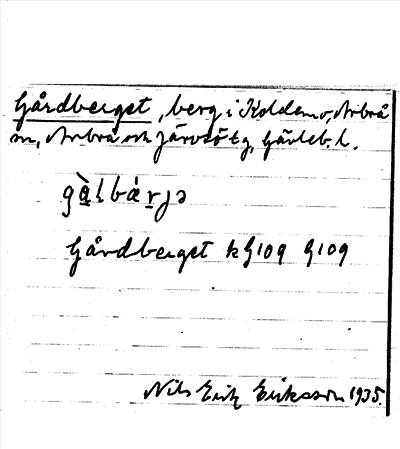 Gårdberget, berg i Koldemo, Arbrå
sn, Arbrå och Järvsö tg, Gävleb. l.
gàlbárjə
Gårdberget kG109 G109
Nils Erik Eriksson 1935.